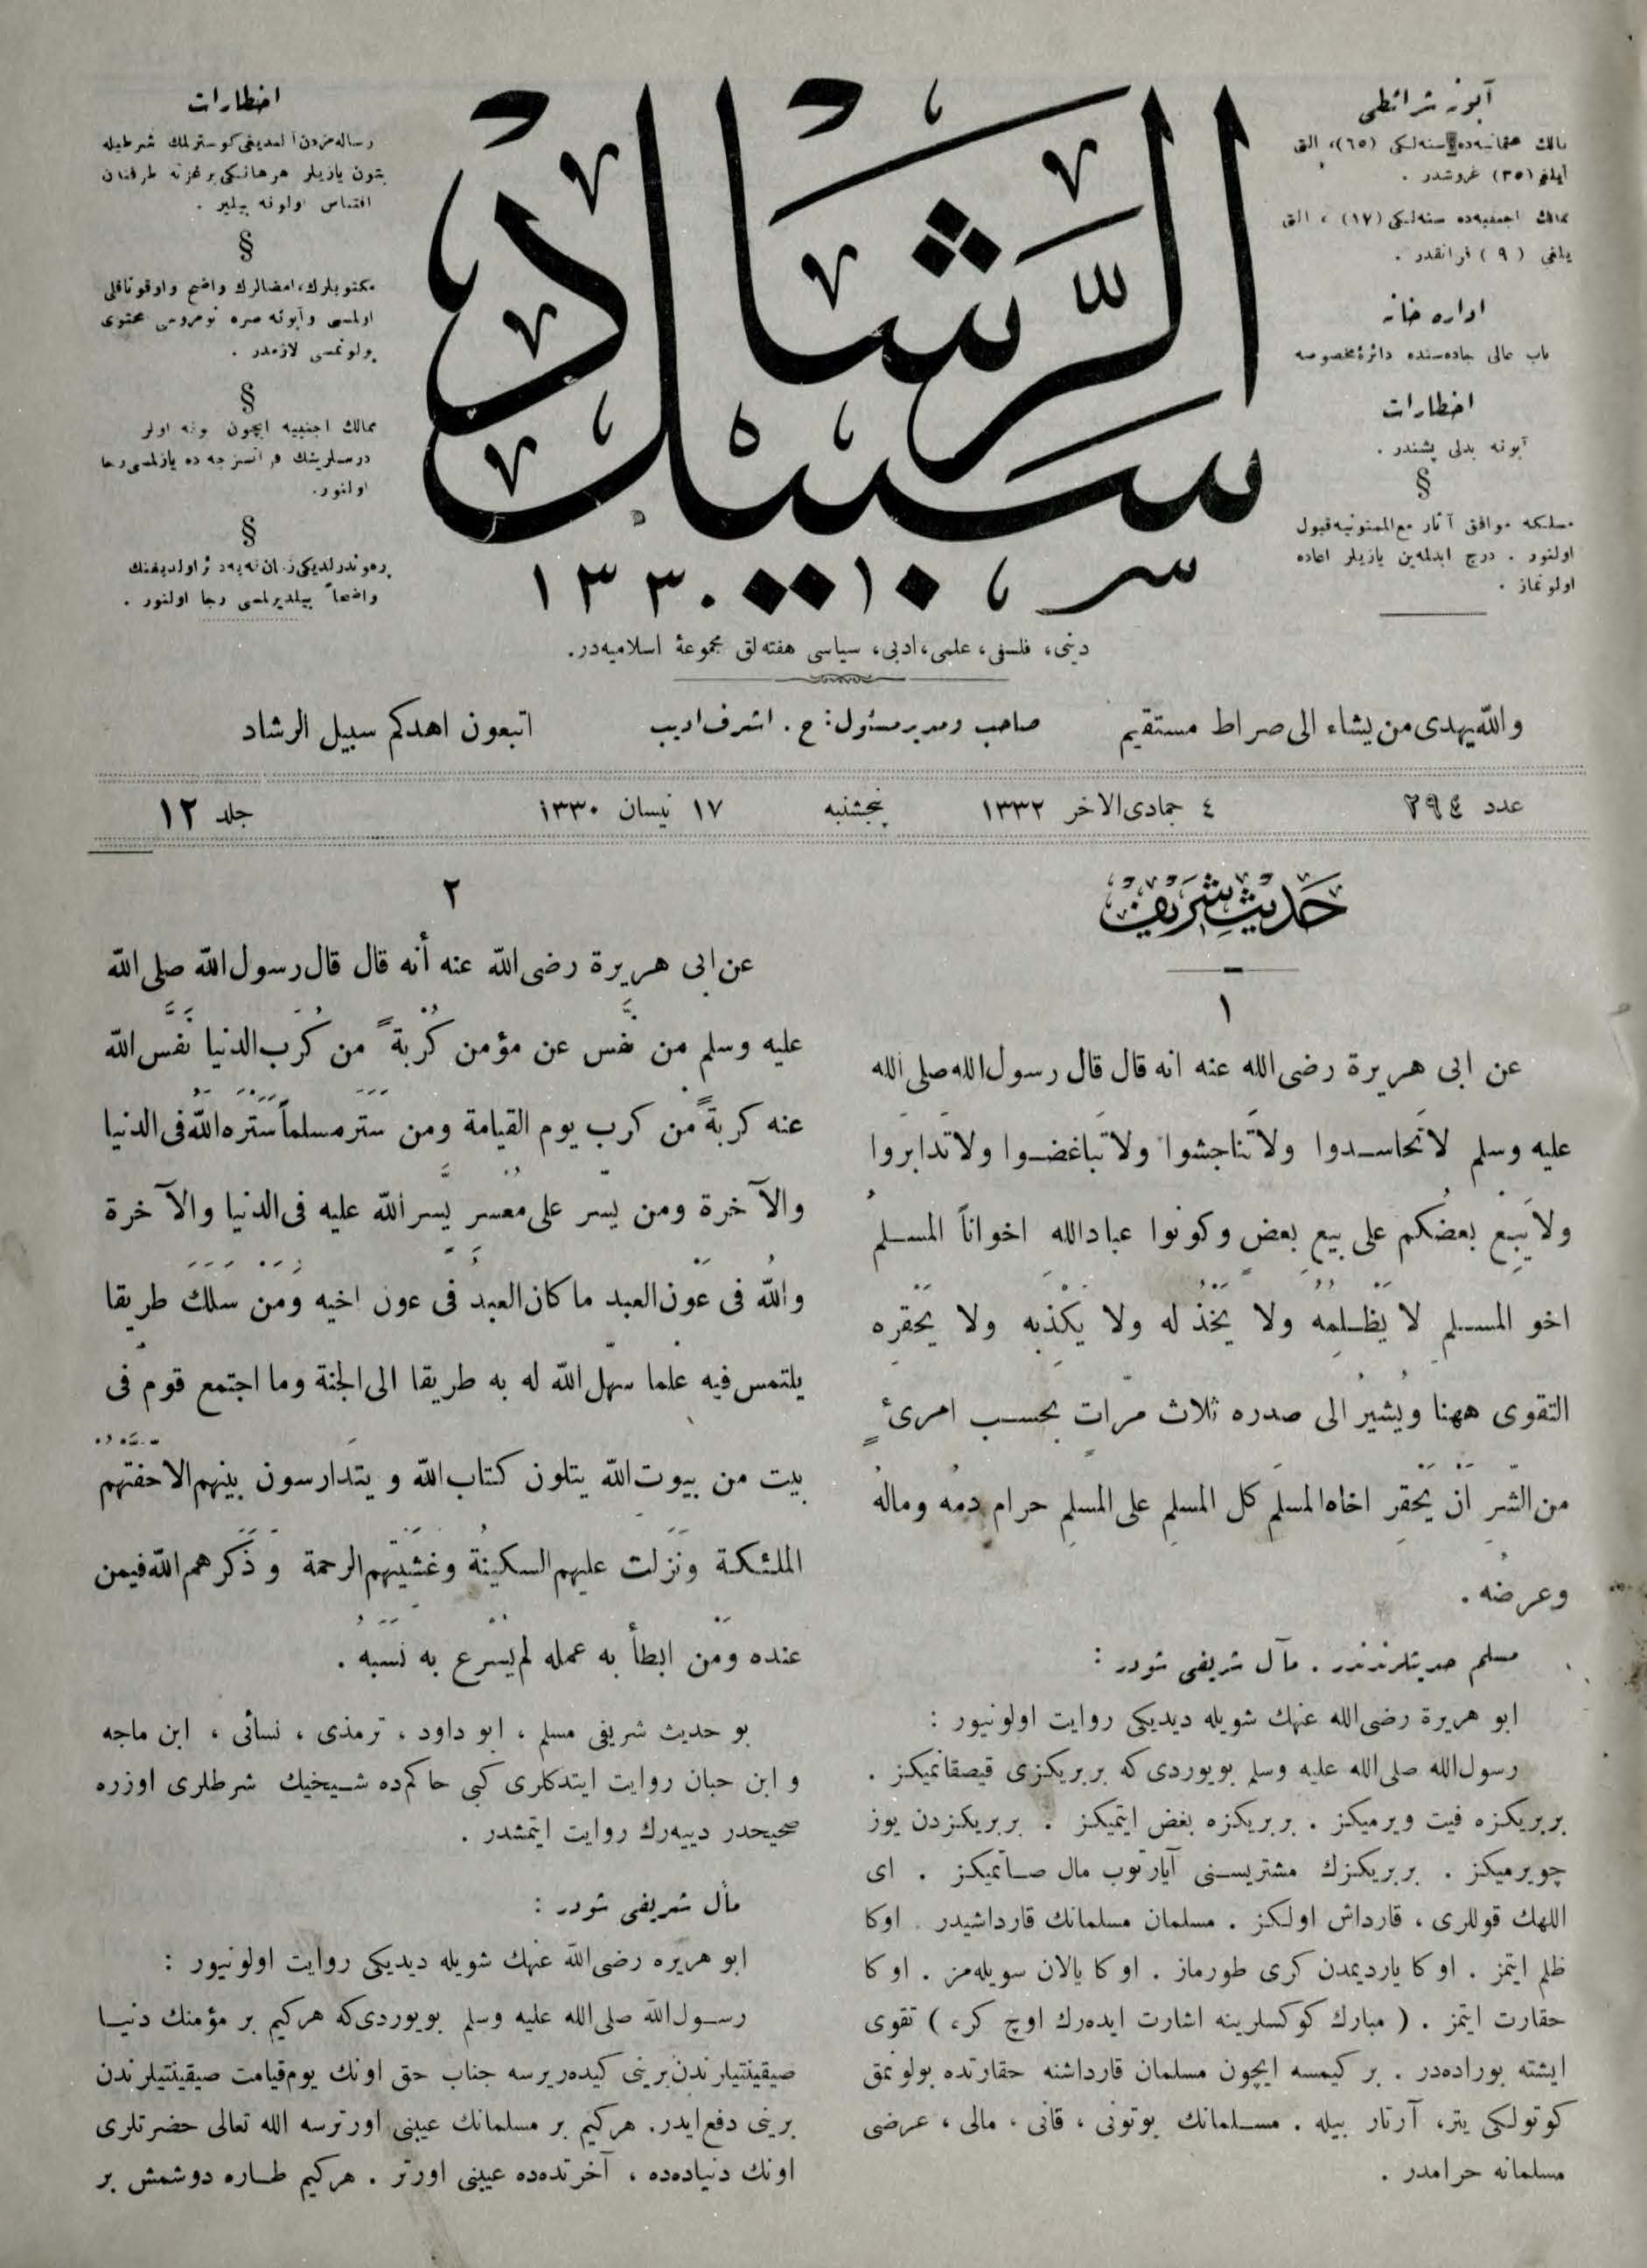 آبونه شرائطی
ممالك عثمانیه‌ده سنه‌لكی (٦٥)، التی
آیلغی (٣٥) غروشدر .
ممالك اجنبیه‌ده سنه‌لكی (١٧) ، التی
یلغی ( ٩ ) فرانقدر .
اداره خانه
باب عالی جاده‌سنده دائرهٔ مخصوصه
اخطارات
آبونه بدلی پشیندر .
§
مسلكه موافق آثار مع الممنونیه قبول
اولنور . درج ایدلمه‌ین یازیلر اعاده
اولونماز .
سبیل الرشاد
سر ١٣٣٠
اخطارات
رساله‌مزدن آلندیغی كوسترلمك شرطیله
بتون یازیلر هر هانكی بر غزته طرفندن
اقتباس اولونه بیلیر .
§
مكتوبلرك، امضالرك واضح و اوقوناقلی
اولمسی و آبونه صره نومروسی محتوی
بولونمسی لازمدر .
§
ممالك اجنبیه ایچون ونه اولر
درسلرینك فرانسزجه ده یازلمسی رجا
اولنور.
§
واضحاً بیلدیرلمسی رجا اولنور .
دینی، فلسفی، علمی، ادبی، سیاسی هفته‌لق مجموعهٔ اسلامیه‌در.
والله یهدی من یشاء الی صراط مستقیم
صاحب و مدیر مسئول: ح . اشرف ادیب
اتبعون اهدكم سبیل الرشاد
عدد ٢٩٤
٤ جمادی الآخر ١٣٣٢
پنجشنبه
١٧ نیسان ١٣٣٠
جلد ١٢
حدیث شریف
١
عن ابی هریرة رضی الله عنه انه قال قال رسول الله صلی الله
علیه وسلم لا تحاسدوا ولا تناجشوا ولا تباغضوا ولا تدابروا
ولا یبع بعضكم علی بیع بعض وكونوا عباد الله اخواناً المسلمُ
اخو المسلمِ لا یظلمه ولا یخذله ولا یكذبه ولا یحقره
التقوی ههنا ویشیر الی صدره ثلاث مرّات بحسب امرئٍ
من الشّر أن یحقر اخاه المسلم كل المسلم علی المسلم حرام دمه وماله
وعرضه .
مسلم حدیثلرندندر . مآل شریفی شودر :
ابو هریرة رضی الله عنهك شویله دیدیكی روایت اولونیور :
رسول الله صلی الله علیه وسلم بویوردی كه بربریكزی قیصقانمیكز .
بربریكزه فیت ویرمیكز . بربریكزه بغض ایتمیكز . بربریكزدن یوز
چویرمیكز . بربریكزك مشتریسنی آیارتوب مال صاتمیكز . ای
اللهك قوللری ، قارداش اولكز . مسلمان مسلمانك قارداشیدر . اوكا
ظلم ایتمز . اوكا یاردیمدن كری طورماز . اوكا یالان سویله‌مز . اوكا
حقارت ایتمز . ( مبارك كوكسلرینه اشارت ایده‌رك اوچ كره ) تقوی
ایشته بوراده‌در . بر كیمسه ایچون مسلمان قارداشنه حقارتده بولونمق
كوتولكی یتر، آرتار بیله . مسلمانك بوتونی ، قانی ، مالی ، عرضی
مسلمانه حرامدر .
٢
عن ابی هریرة رضی الله عنه أنه قال قال رسول الله صلی الله
علیه وسلم من نفّس عن مؤمن كُرْبةً من كُرَب الدنیا نفّس الله
عنه كربةً من كرب یوم القیامة ومن ستر مسلماً ستره الله فی الدنیا
والآخرة ومن یسّر علی معسر یسّر الله علیه فی الدنیا والآخرة
والله فی عون العبد ما كان العبد فی عون اخیه ومن سلك طریقا
یلتمس فیه علما سهّل الله له به طریقا الی الجنة وما اجتمع قوم فی
بیت من بیوت الله یتلون كتاب الله و یتدارسون بینهم الا حفّتهم
الملئكة ونزلت علیهم السكینة وغشیتهم الرحمة وذكرهم الله فیمن
عنده ومن ابطأ به عمله لم یسرع به نسبه .
بو حدیث شریفی مسلم ، ابو داود ، ترمذی ، نسائی ، ابن ماجه
و ابن حبان روایت ایتدكلری كبی حاكم‌ده شیخینك شرطلری اوزره
صحیحدر دییه‌رك روایت ایتمشدر .
مآل شریفی شودر :
ابو هریره رضی الله عنهك شویله دیدیكی روایت اولونیور :
رسول الله صلی الله علیه وسلم بویوردی كه هركیم بر مؤمنك دنیا
صیقینتیلرندن برینی كیده‌ریرسه جناب حق اونك یوم قیامت صیقینتیلرندن
برینی دفع ایدر. هركیم بر مسلمانك عیبنی اورترسه الله تعالی حضرتلری
اونك دنیاده‌ده ، آخرتده‌ده عیبنی اورتر . هركیم طاره دوشمش بر